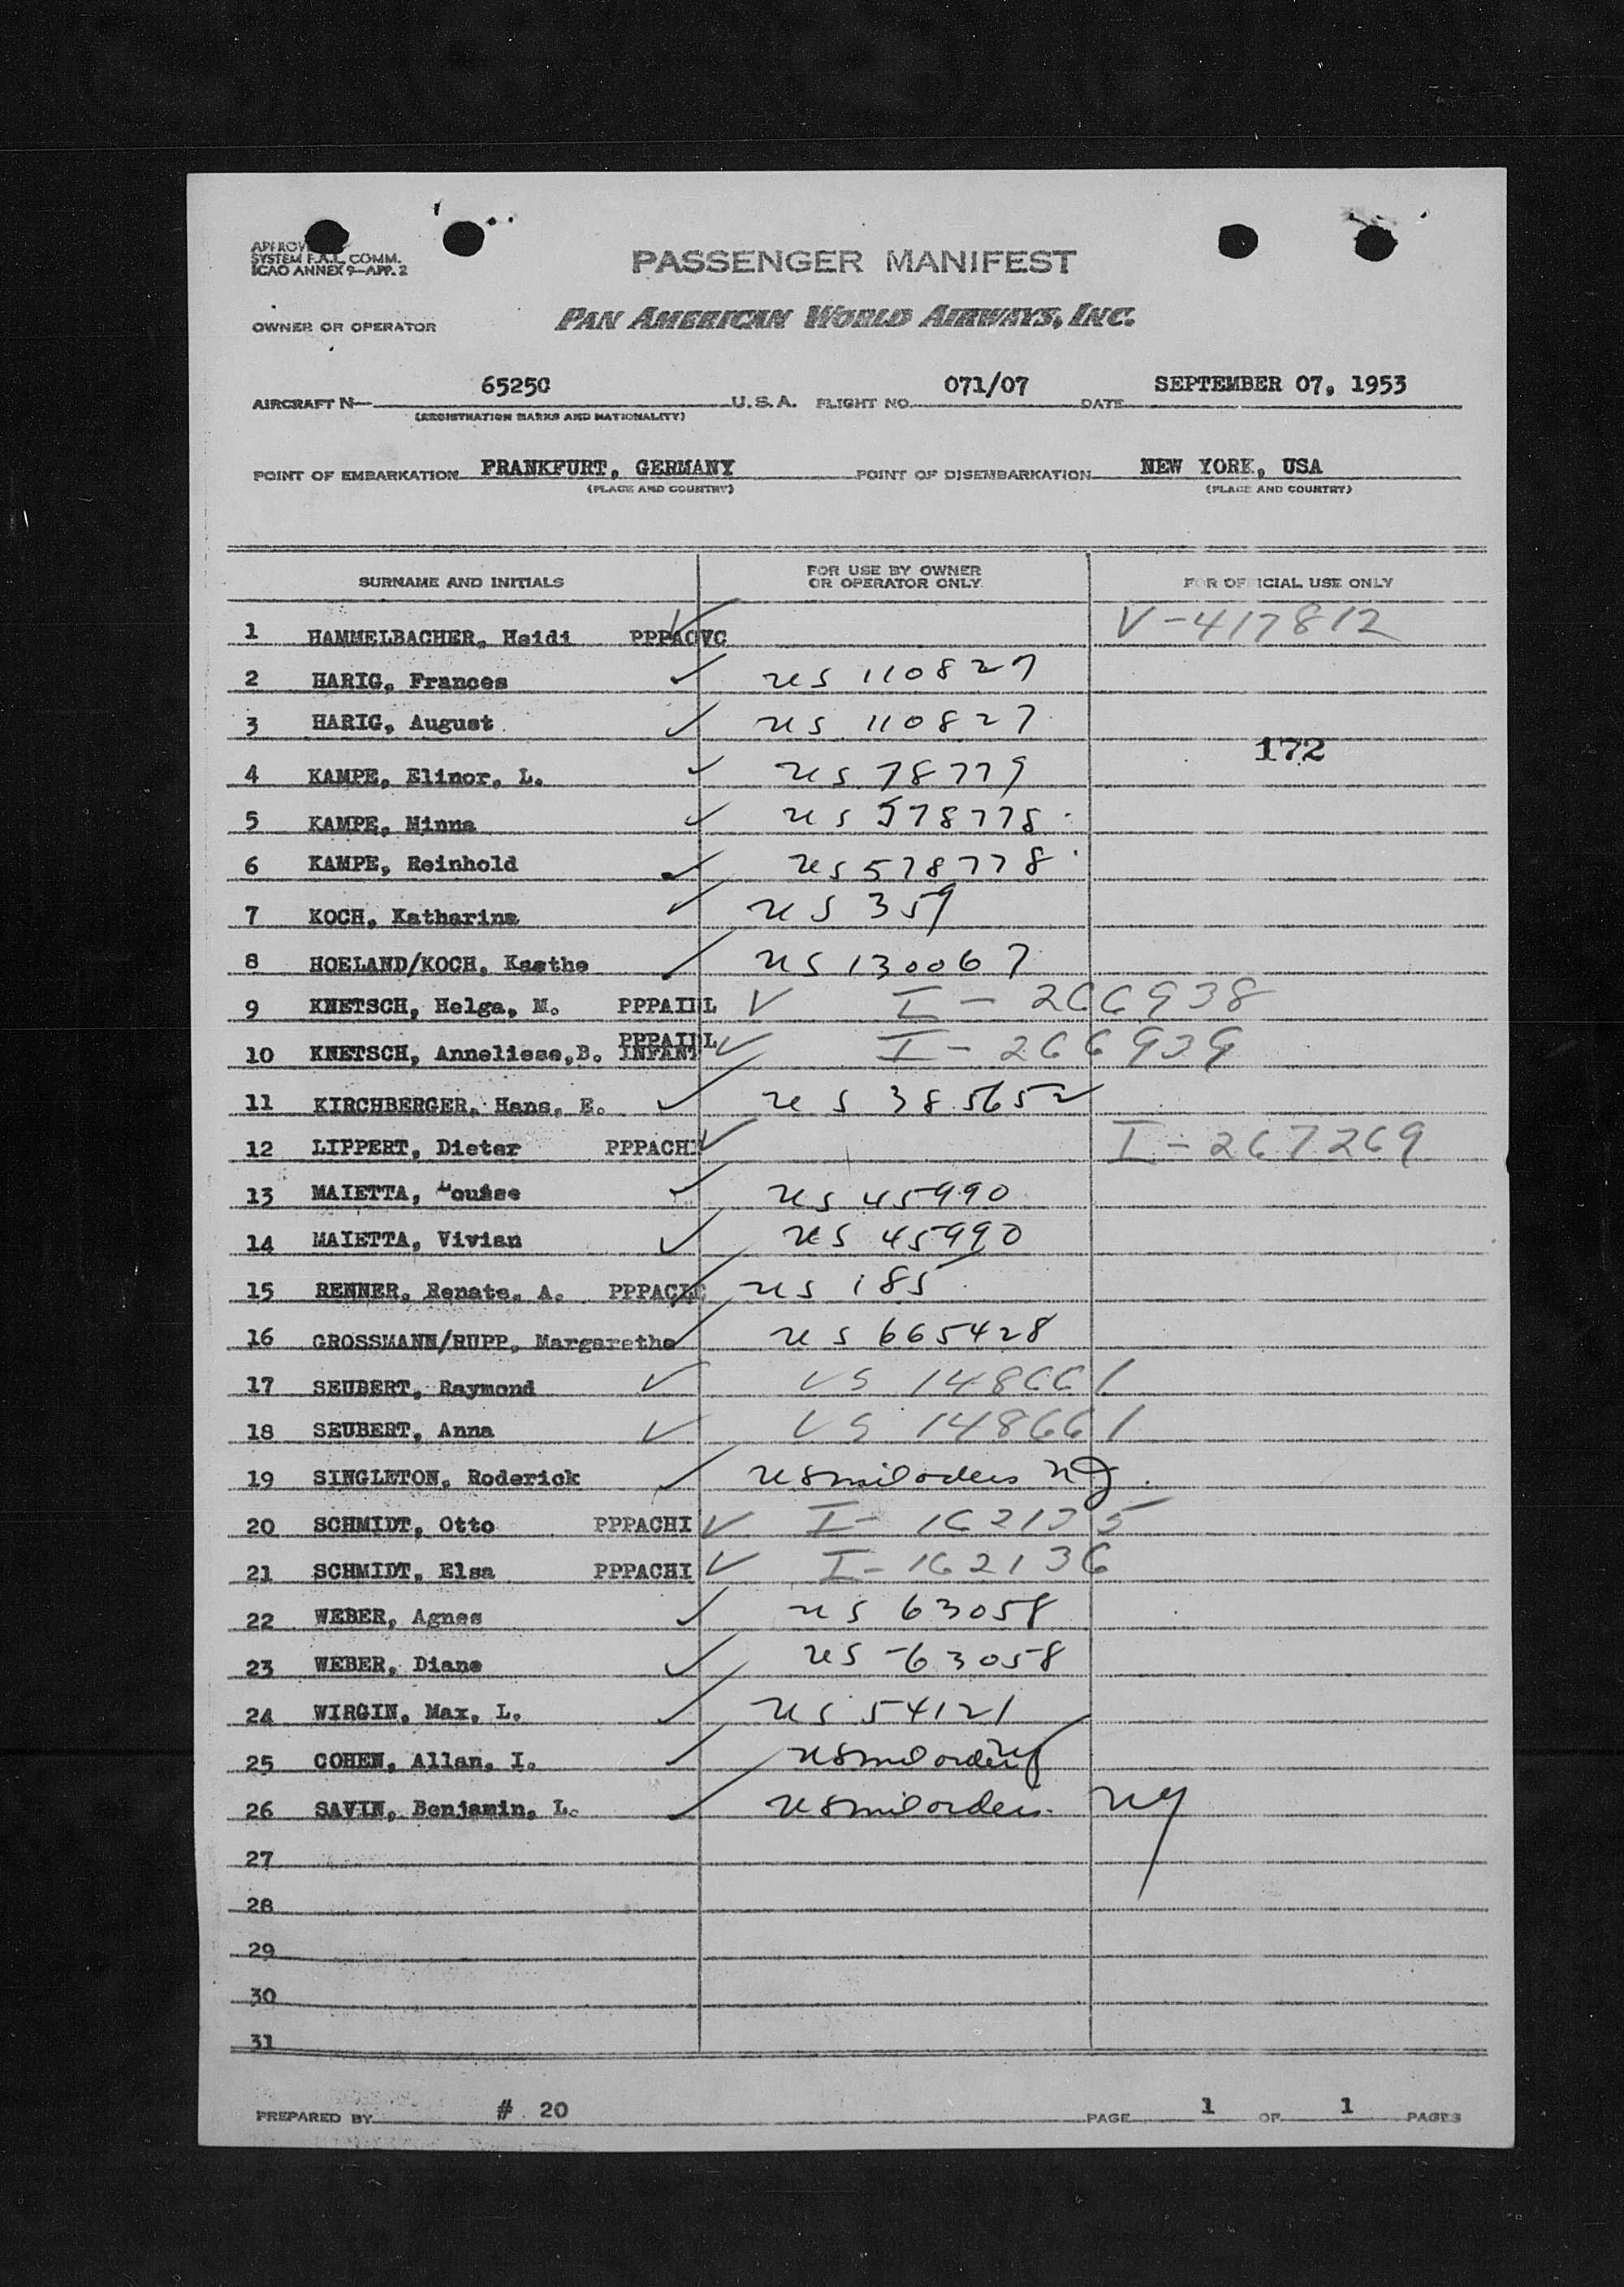 APPROVED BY
SYSTEM F.A.L. COMM.
ICAO ANNEX 9—APP. 2
PASSENGER MANIFEST
OWNER OR OPERATOR PAN AMERICAN WORLD AIRWAYS, INC.
AIRCRAFT N— 65250 U.S.A. FLIGHT NO. 071/07 DATE SEPTEMBER 07, 1953
(REGISTRATION MARKS AND NATIONALITY)
POINT OF EMBARKATION FRANKFURT, GERMANY POINT OF DISEMBARKATION NEW YORK, USA
(PLACE AND COUNTRY) (PLACE AND COUNTRY)
SURNAME AND INITIALS FOR USE BY OWNER OR OPERATOR ONLY. FOR OFFICIAL USE ONLY
1 HAMMELBACHER, Heidi PPPACVC V-417812
2 HARIG, Frances US 110827
3 HARIG, August US 110827
172
4 KAMPE, Elinor, L. US 78779
5 KAMPE, Minna US 578778
6 KAMPE, Reinhold US 578778
7 KOCH, Katharina US 359
8 HOELAND/KOCH, Kaethe US 130067
9 KNETSCH, Helga, M. PPPAIIL I-266938
10 KNETSCH, Anneliese,B. PPPAIIL INFANT I-266939
11 KIRCHBERGER, Hans, E. US 385652
12 LIPPERT, Dieter PPPACHI I-267269
13 MAIETTA, Louise US 45990
14 MAIETTA, Vivian US 45990
15 RENNER, Renate, A. US 185
16 GROSSMANN/RUPP, Margarethe US 665428
17 SEUBERT, Raymond US 148661
18 SEUBERT, Anna US 148661
19 SINGLETON, Roderick US mil orders NY
20 SCHMIDT, Otto PPPACHI I-162135
21 SCHMIDT, Elsa PPPACHI I-162136
22 WEBER, Agnes US 63058
23 WEBER, Diane US 63058
24 WIRGIN, Max, L. US 54121
25 COHEN, Allan, I. US mil orders NY
26 SAVIN, Benjamin, L. US mil orders. NY
27
28
29
30
31
PREPARED BY # 20 PAGE 1 OF 1 PAGES